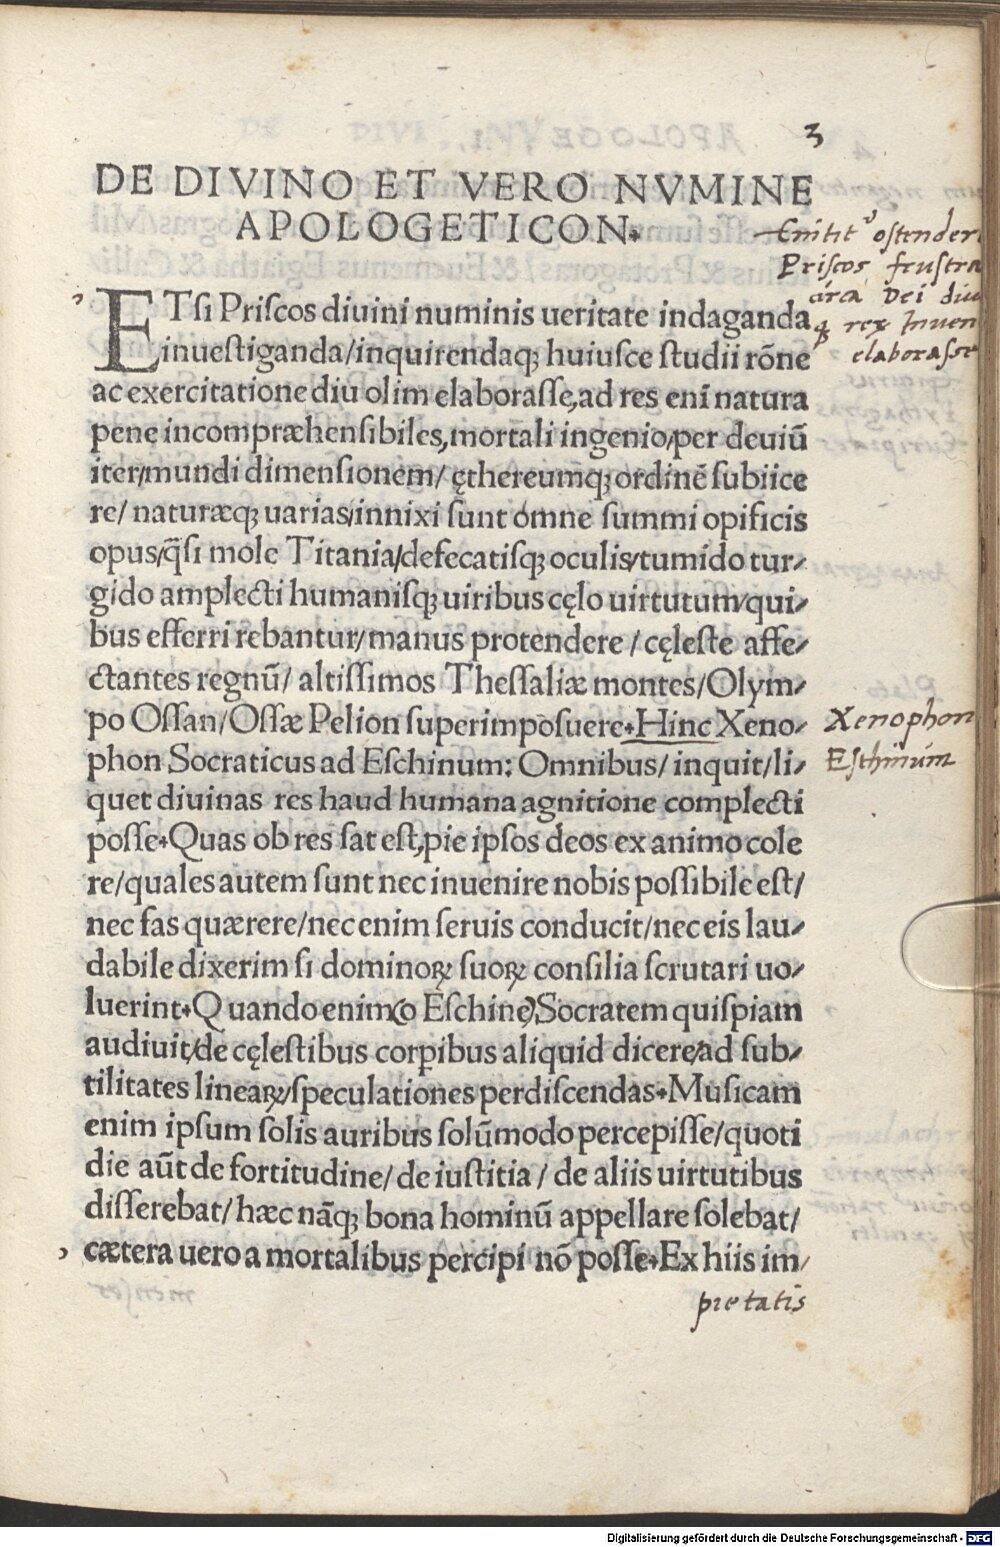 3
DE DIVINO ET VERO NVMINE
APOLOGETICON.
Enitit᷒ ostender
Priscos frustra
circa Dei diu
rex Inuen
elaborasse
ETſi Priſcos diuini numinis ueritate indaganda
inueſtiganda/inquirendaq; huiuſce ſtudii rōne
ac exercitatione diu olim elaboraſſe,ad res eni̅ natura
pene incompræhenſibiles,mortali ingenio/per deuiū
iter/mundi dimenſionem/ ęthereumq; ordinē ſubiice
re/ naturæq; uarias/innixi ſunt omne ſummi opificis
opus/q̄ſi mole Titania/defecatiſq; oculis/tumido tur⸗
gido amplecti humaniſq; uiribus cęlo uirtutum/qui⸗
bus efferri rebantur/manus protendere / cęleſte affe⸗
ctantes regnū/ altiſſimos Theſſaliæ montes/Olym⸗
po Oſſan/Oſſæ Pelion ſuperimpoſuere. Hinc Xeno⸗
phon Socraticus ad Eſchinum: Omnibus/ inquit/li⸗
quet diuinas res haud humana agnitione complecti
poſſe. Quas ob res ſat eſt,pie ipſos deos ex animo cole
re/quales autem ſunt nec inuenire nobis poſſibile eſt/
nec fas quærere/nec enim ſeruis conducit/nec eis lau⸗
dabile dixerim ſi dominoꝝ ſuoꝝ conſilia ſcrutari uo⸗
luerint. Quando enim(o Eſchine)Socratem quiſpiam
audiuit/de cęleſtibus corꝑibus aliquid dicere/ad ſub⸗
tilitates lineaꝝ/ſpeculationes perdiſcendas. Muſicam
enim ipſum ſolis auribus ſolūmodo percepiſſe/quoti
die aūt de fortitudine/ de iuſtitia / de aliis uirtutibus
diſſerebat/ hæc nāq; bona hominū appellare ſolebat/
cætera uero a mortalibus percipi nō poſſe. Ex hiis im⸗
Xenophon
Esthinum
pietatis
Digitalisierung gefördert durch die Deutsche Forschungsgemeinschaft - DFG